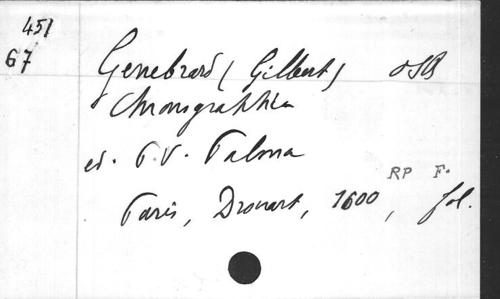 451
G7
Genebrard (Gilbert) OSB
Chronographia
ed. P.V. Palma
RP F.
Paris, Drouart, 1600, fol.